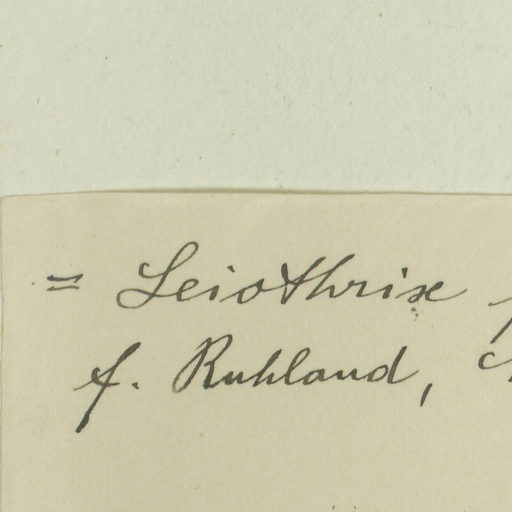 = Leiothrix
f. Ruhland,